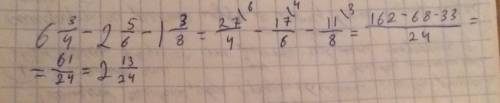 6 3/4 - 2 5/6 - 1 3/8 = 27/4 \6 - 17/6 \4 - 11/8 \3 = 162-68-33/24 =
= 61/24 = 2 13/24